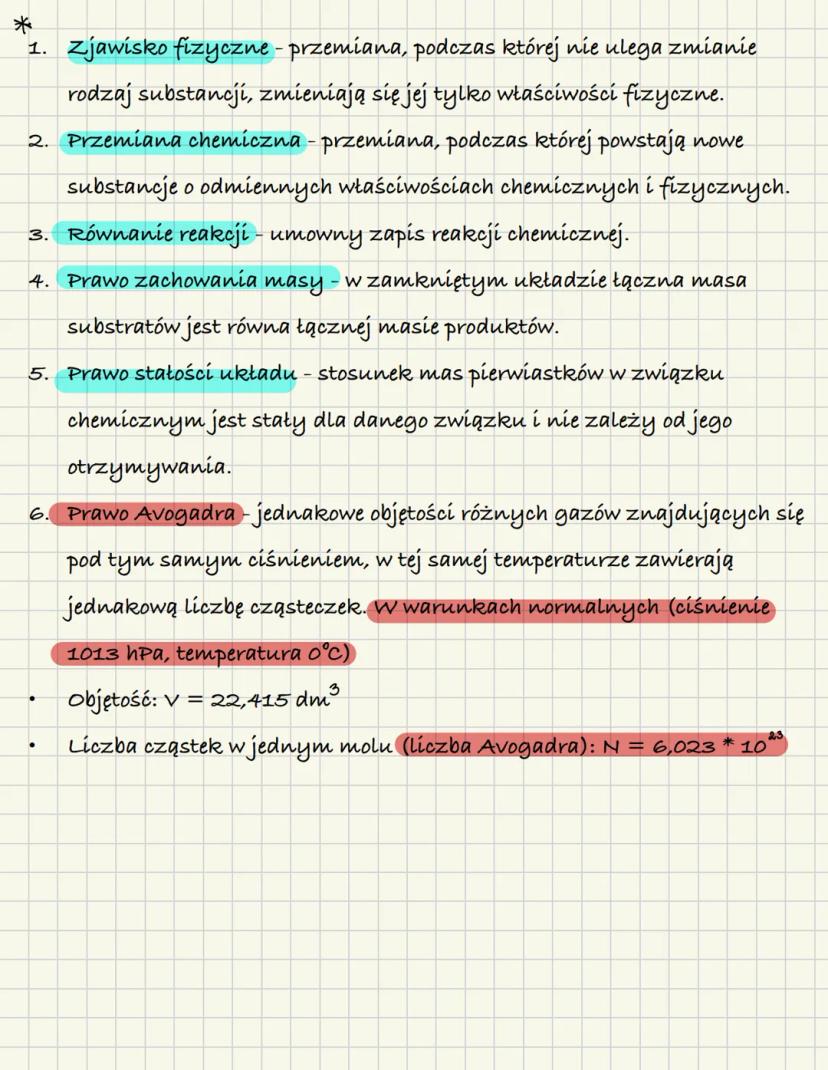 *
1. Zjawisko fizyczne - przemiana, podczas której nie ulega zmianie
rodzaj substancji, zmieniają się jej tylko właściwości fizyczne.
2. Przemiana chemiczna - przemiana, podczas której powstają nowe
substancje o odmiennych właściwościach chemicznych i fizycznych.
3. Równanie reakcji - umowny zapis reakcji chemicznej.
4. Prawo zachowania masy - w zamkniętym układzie łączna masa
substratów jest równa łącznej masie produktów.
5. Prawo stałości układu - stosunek mas pierwiastków w związku
chemicznym jest stały dla danego związku i nie zależy od jego
otrzymywania.
6. Prawo Avogadra - jednakowe objętości różnych gazów znajdujących się
pod tym samym ciśnieniem, w tej samej temperaturze zawierają
jednakową liczbę cząsteczek. W warunkach normalnych (ciśnienie
1013 hPa, temperatura 0°C)
• Objętość: V = 22,415 dm³
• Liczba cząstek w jednym molu (liczba Avogadra): N = 6,023 * 10²³